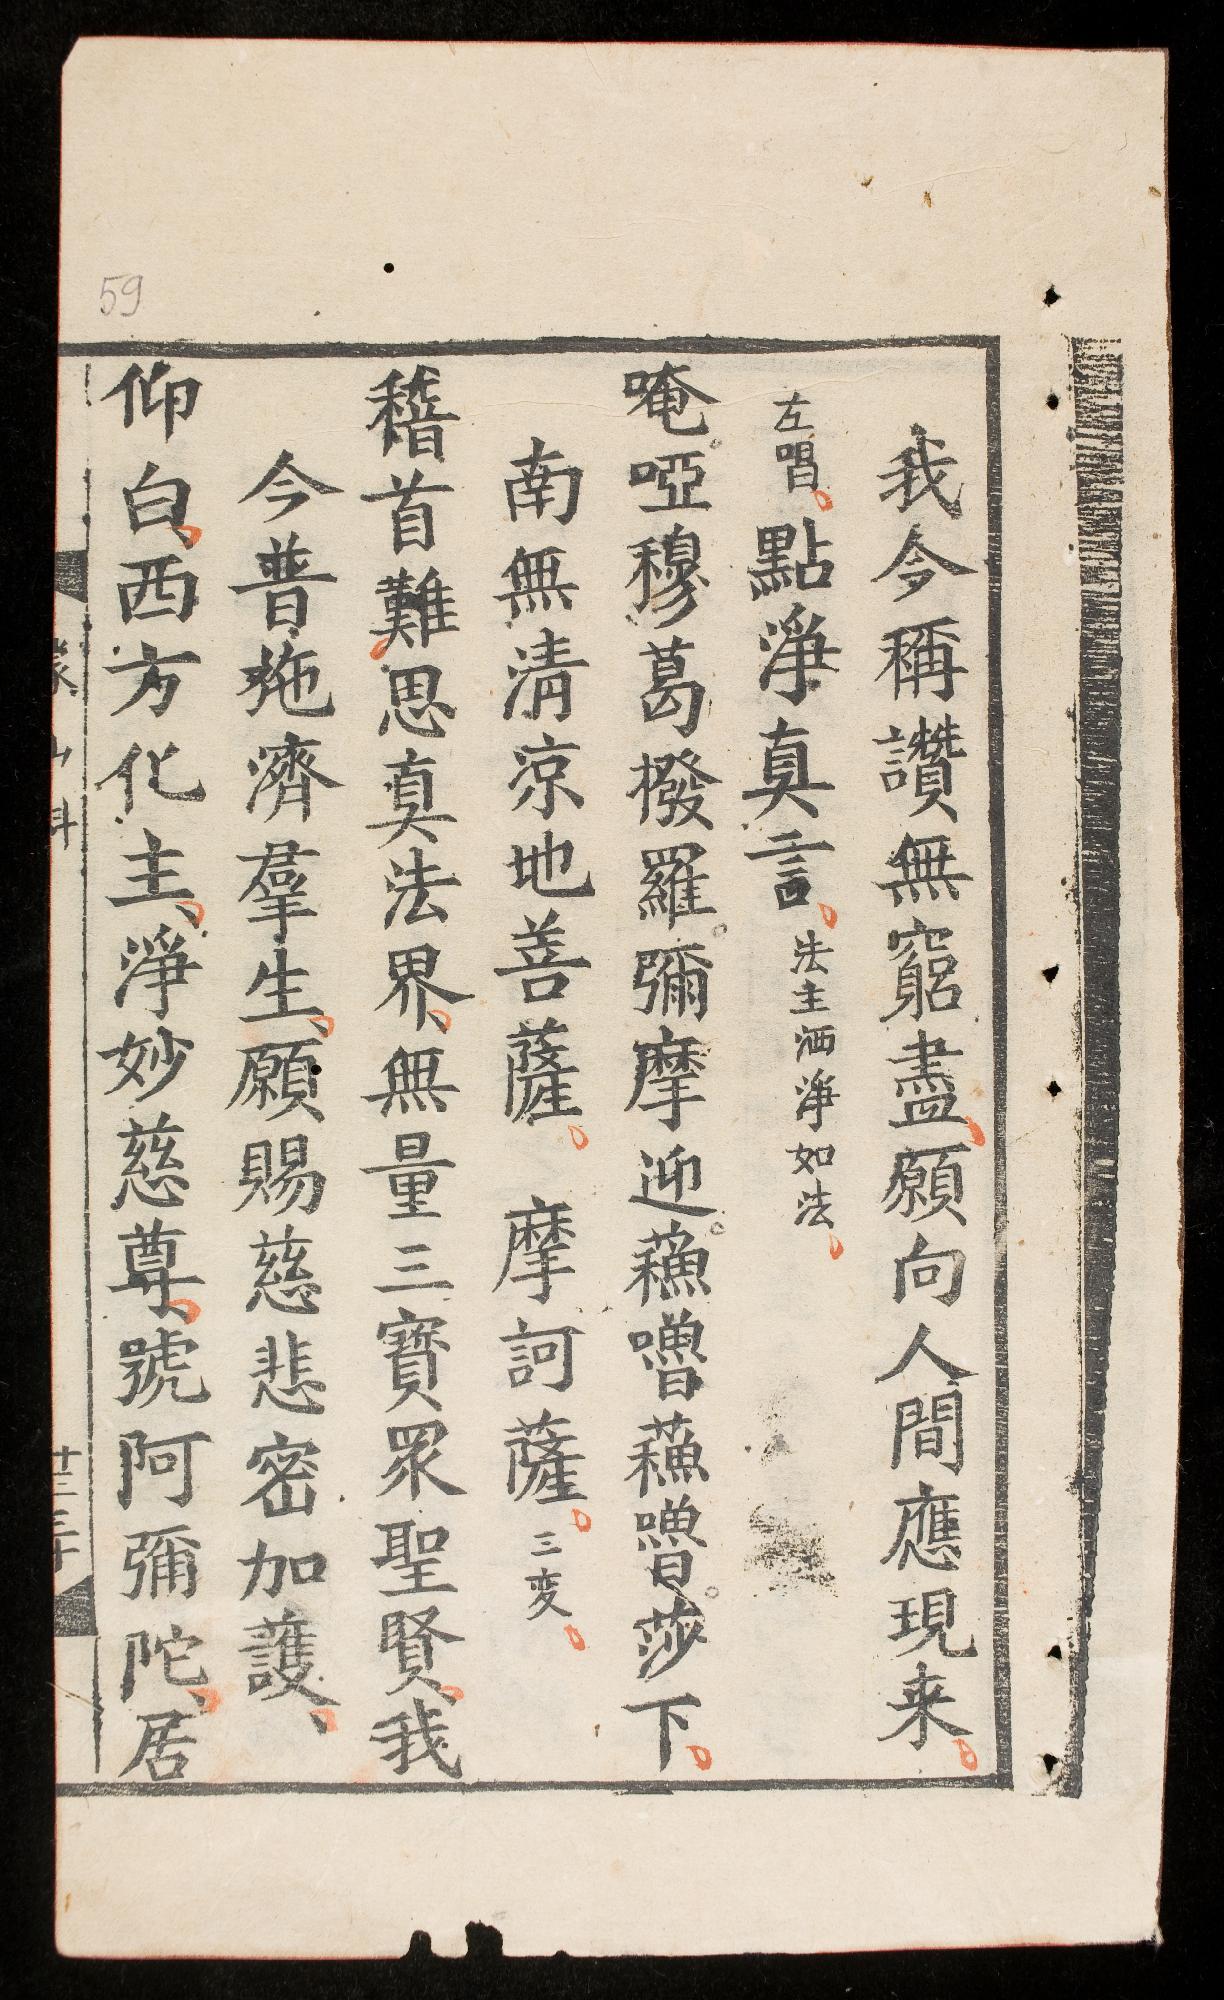 59
我今稱讚無窮盡願向人間應現来
左唱點淨真言法主洒淨如法
唵啞穆葛撥羅彌摩迎蘓嚕蘓嚕莎下
南無清凉地菩薩 摩訶薩三変
稽首難思真法界無量三寶眾聖賢我
今普施濟羣生願賜慈悲密加護
仰白西方化主淨妙慈尊號阿彌陀居